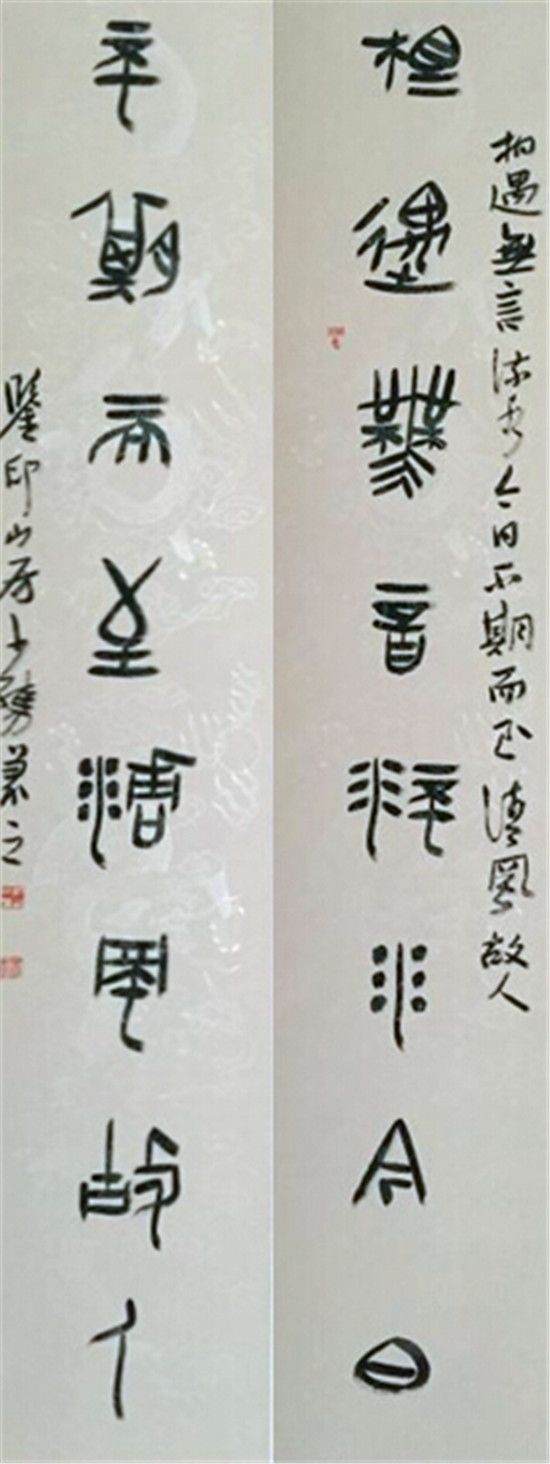 相遇無言流水今日不期而至清風故人
相遇無言流水今日
不期而至清風故人
鑒印山房少孺篆之